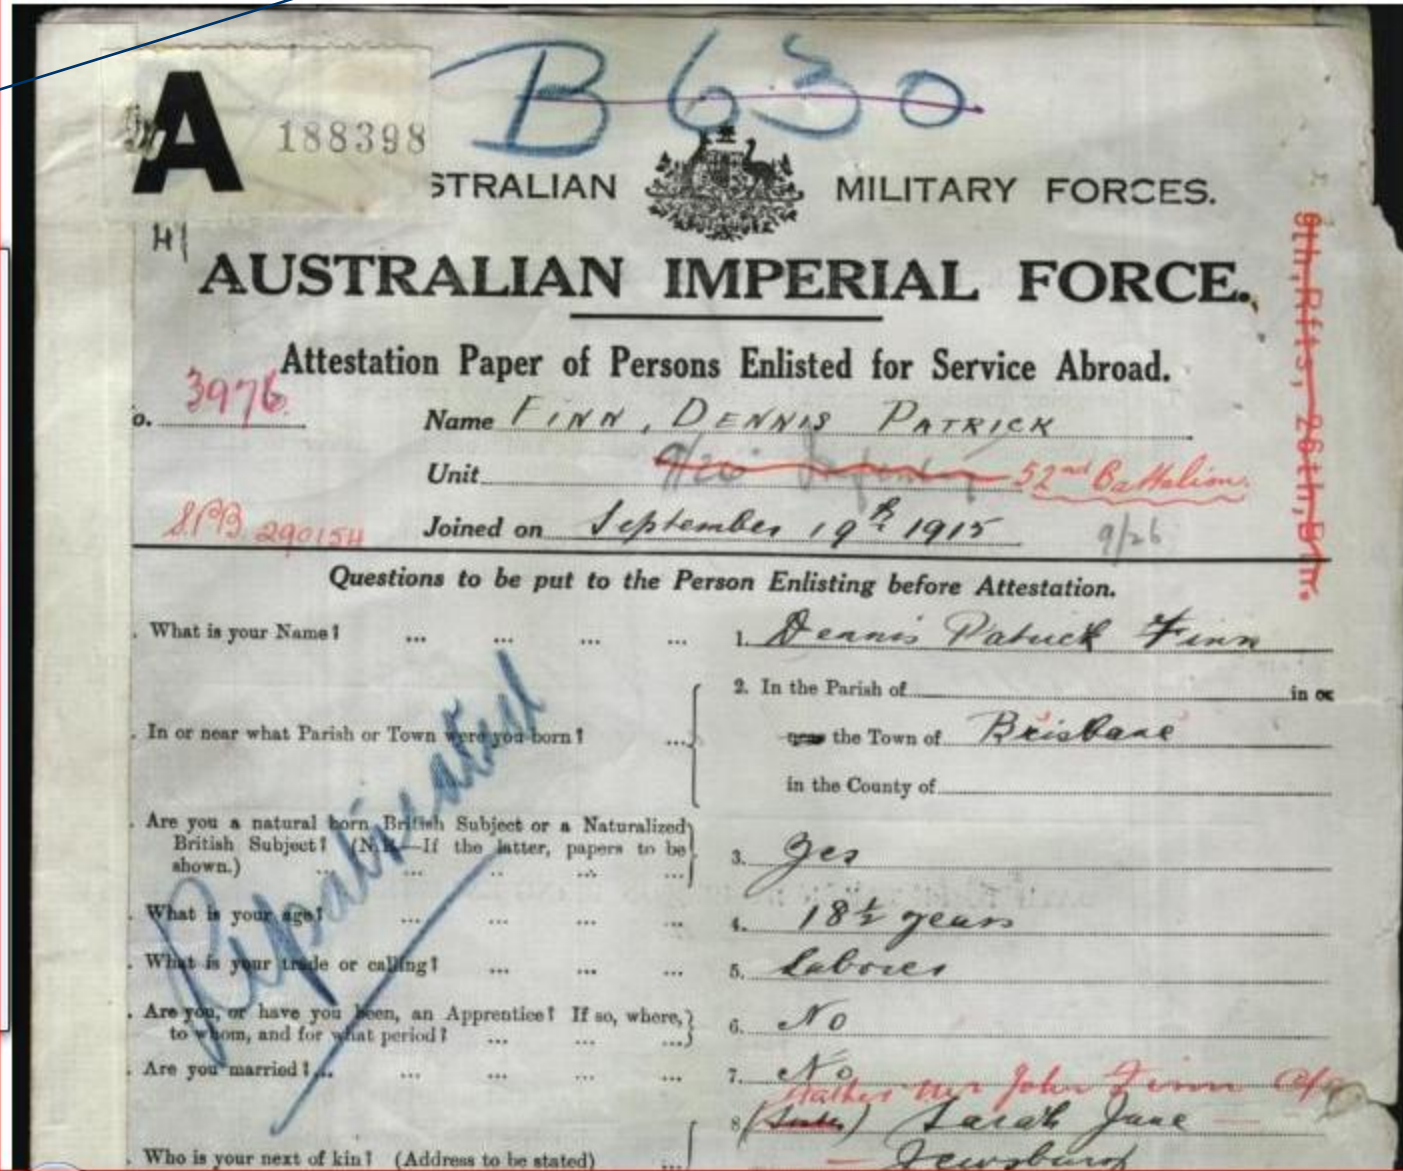 B 630
A 188398
STRALIAN MILITARY FORCES.
H1
AUSTRALIAN IMPERIAL FORCE.
9th, Rfts, 26th, Btn.
Attestation Paper of Persons Enlisted for Service Abroad.
o. 3976
Name FINN, DENNIS PATRICK
Unit 9/26 Infantry 52nd Battalion
290154
Joined on September 19th 1915
9/26
Questions to be put to the Person Enlisting before Attestation.
. What is your Name? ... ... ... ... 1. Dennis Patrick Finn
2. In the Parish of in or
. In or near what Parish or Town were you born? ... near the Town of Brisbane
in the County of
. Are you a natural born British Subject or a Naturalized
British Subject? (N.B.—If the latter, papers to be
shown.) ... ... .. ... ... 3. Yes
. What is your age? ... ... ... ... 4. 18½ years
. What is your trade or calling? ... ... ... 5. Laborer
. Are you, or have you been, an Apprentice? If so, where,
to whom, and for what period? ... ... ... 6. No
. Are you married? ... ... ... ... ... 7. No
Father Mr John Finn
8 (Sister) Sarah Jane
. Who is your next of kin? (Address to be stated) ...
Repatriated